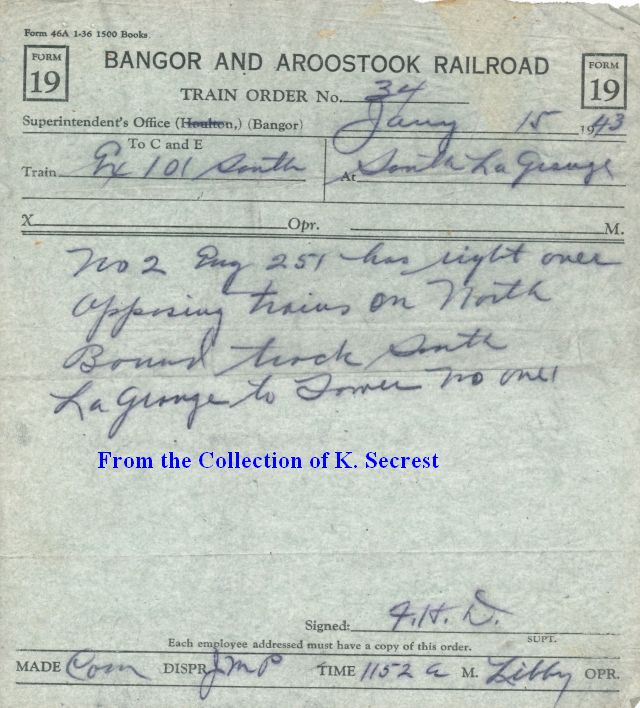 Form 46A 1-36 1500 Books
FORM 19
BANGOR AND AROOSTOOK RAILROAD
FORM 19
TRAIN ORDER No. 34
Superintendent's Office (Houlton,) (Bangor) Jany 15 1943
To C and E
Train Ex 101 South At South LaGrange
X Opr. M.
No 2 Eng 251 has right over
opposing trains on North
Bound track South
LaGrange to Tower No one
From the Collection of K. Secrest
Signed: F.H.D.
SUPT.
Each employee addressed must have a copy of this order.
MADE Com DISPR JMP TIME 1152 a M. Libby OPR.